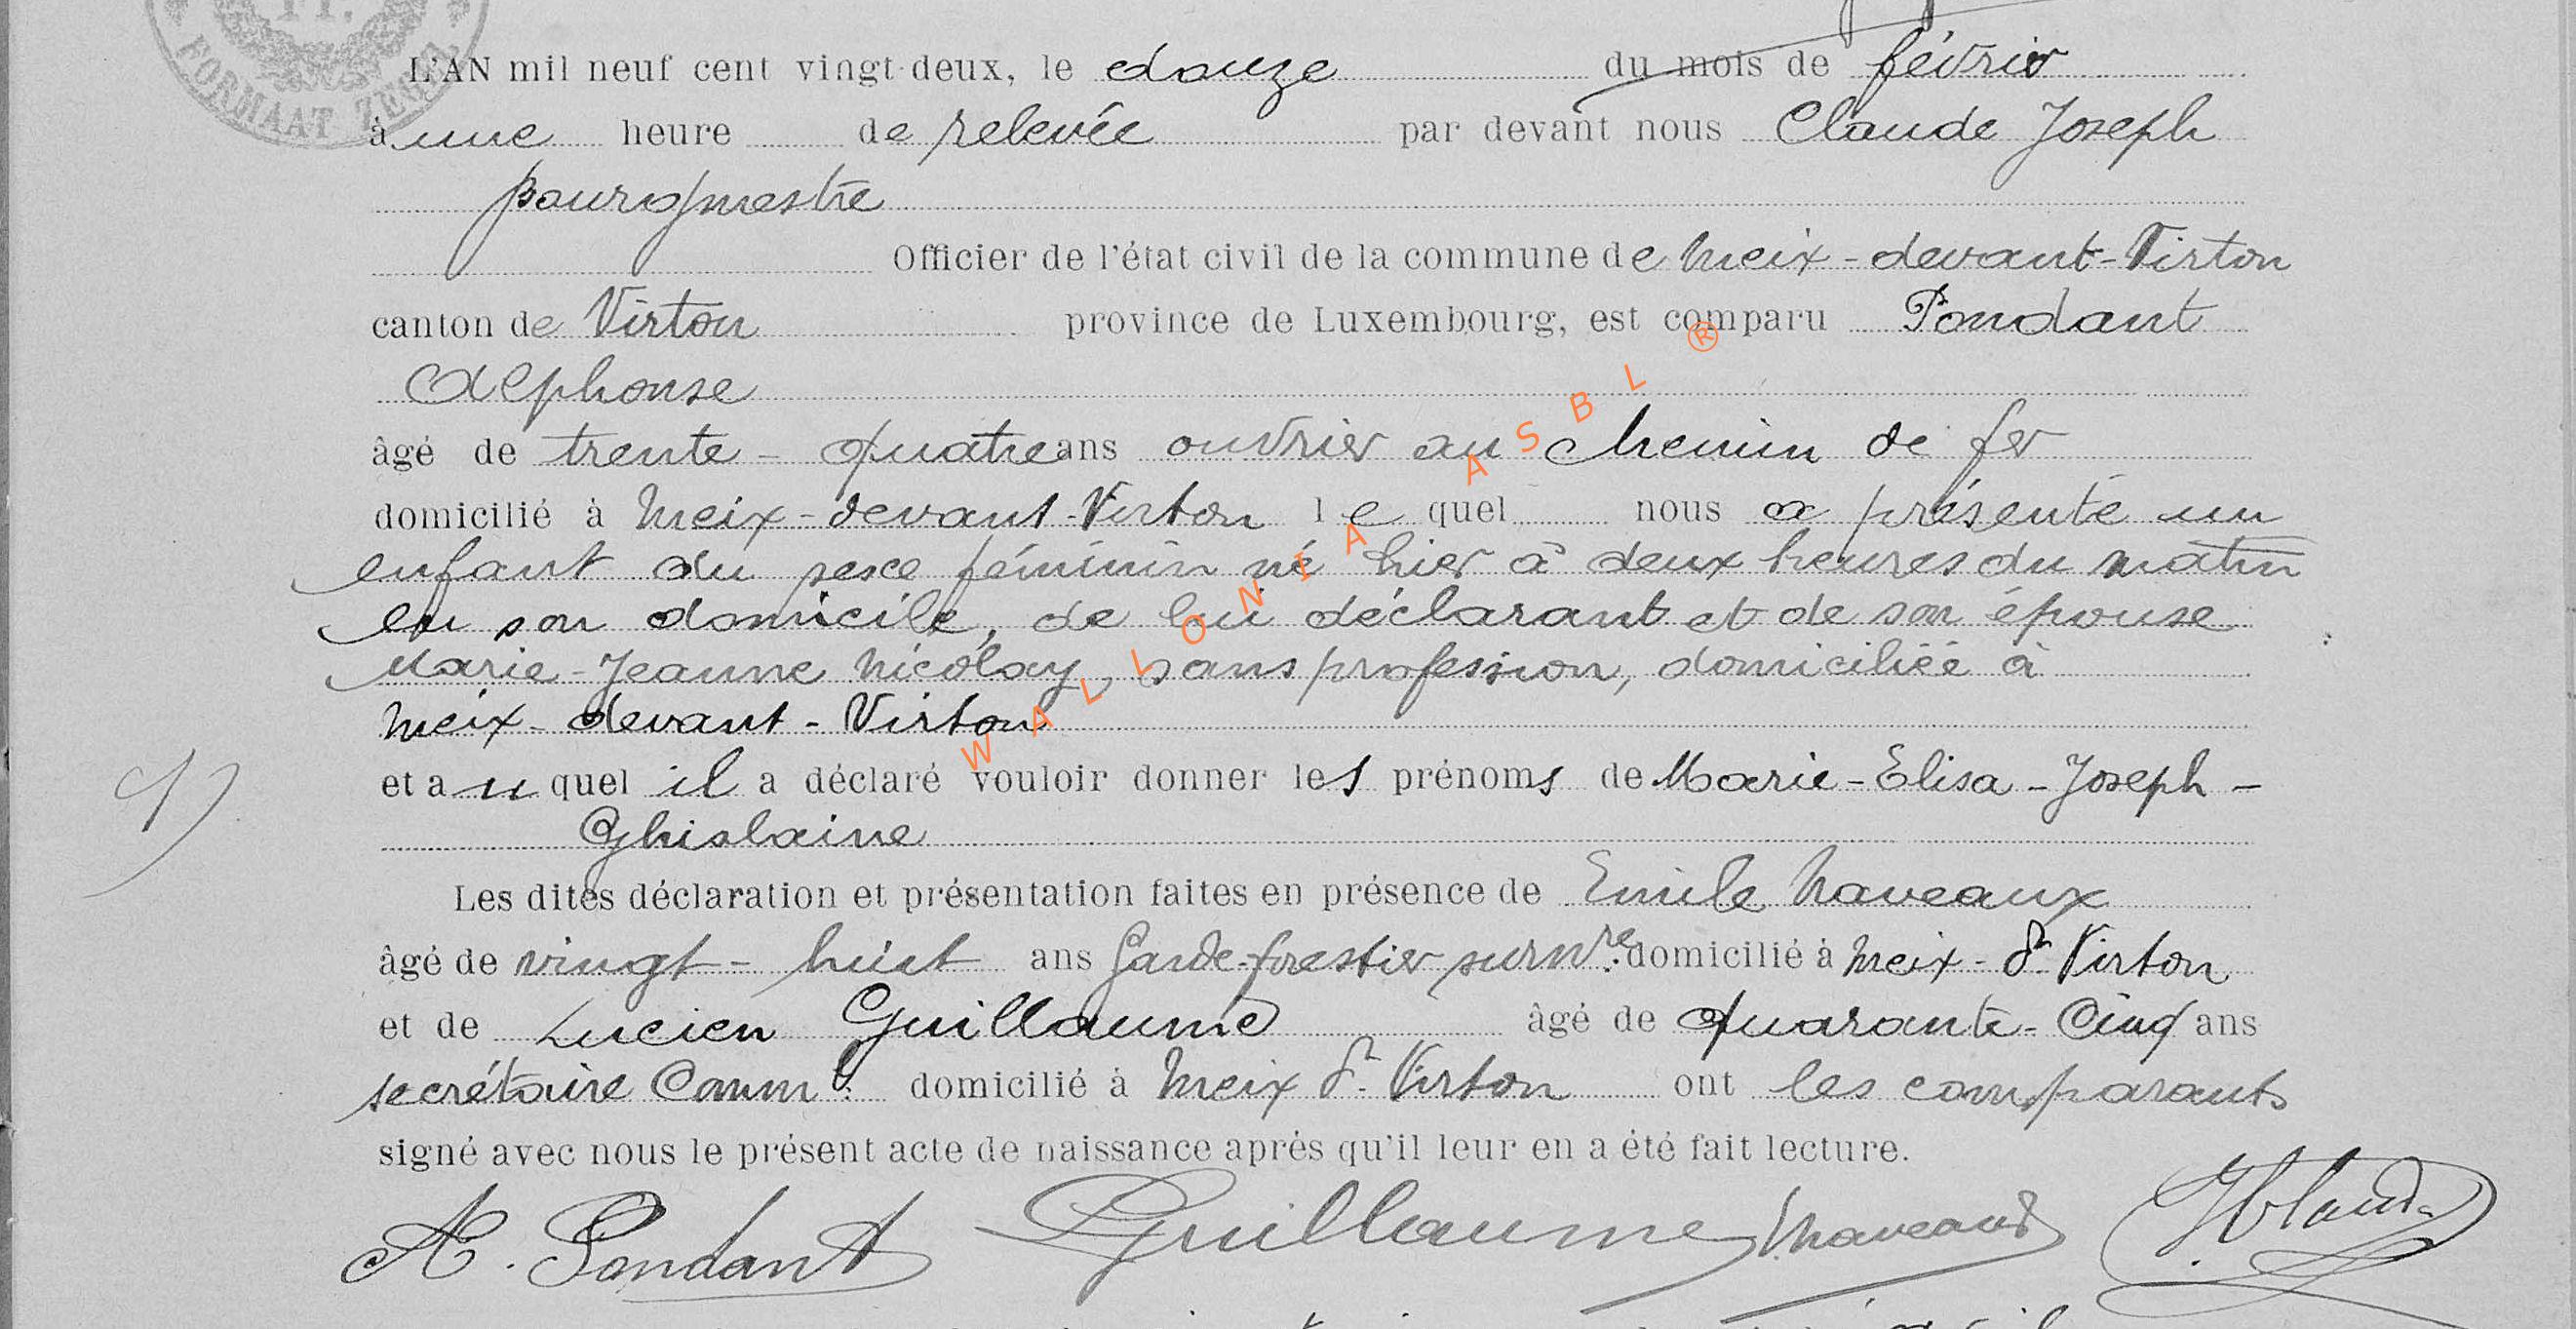 FORMAAT ZEGEL
L'AN mil neuf cent vingt-deux, le douze du mois de février
à une heure de relevée par devant nous Claude Joseph
bourgmestre
Officier de l'état civil de la commune de Meix-devant-Virton
canton de Virton province de Luxembourg, est comparu Pondant
Alphonse
âgé de trente-quatre ans ouvrier au chemin de fer
domicilié à Meix-devant-Virton lequel nous a présenté un
enfant du sexe féminin né hier à deux heures du matin
en son domicile, de lui déclarant et de son épouse
Marie-Jeanne Nicolay, sans profession, domiciliée à
Meix-devant-Virton
et auquel il a déclaré vouloir donner les prénoms de Marie-Elisa-Joseph-
Ghislaine
Les dites déclaration et présentation faites en présence de Emile Naveaux
âgé de vingt-huit ans Garde-forestier surnre. domicilié à Meix-dt-Virton
et de Lucien Guillaume âgé de quarante-cinq ans
secrétaire Comml: domicilié à Meix-dt-Virton ont les comparants
signé avec nous le présent acte de naissance après qu'il leur en a été fait lecture.
A. Pondant Guillaume Naveaux J Claude
WALLONIA ASBL ®